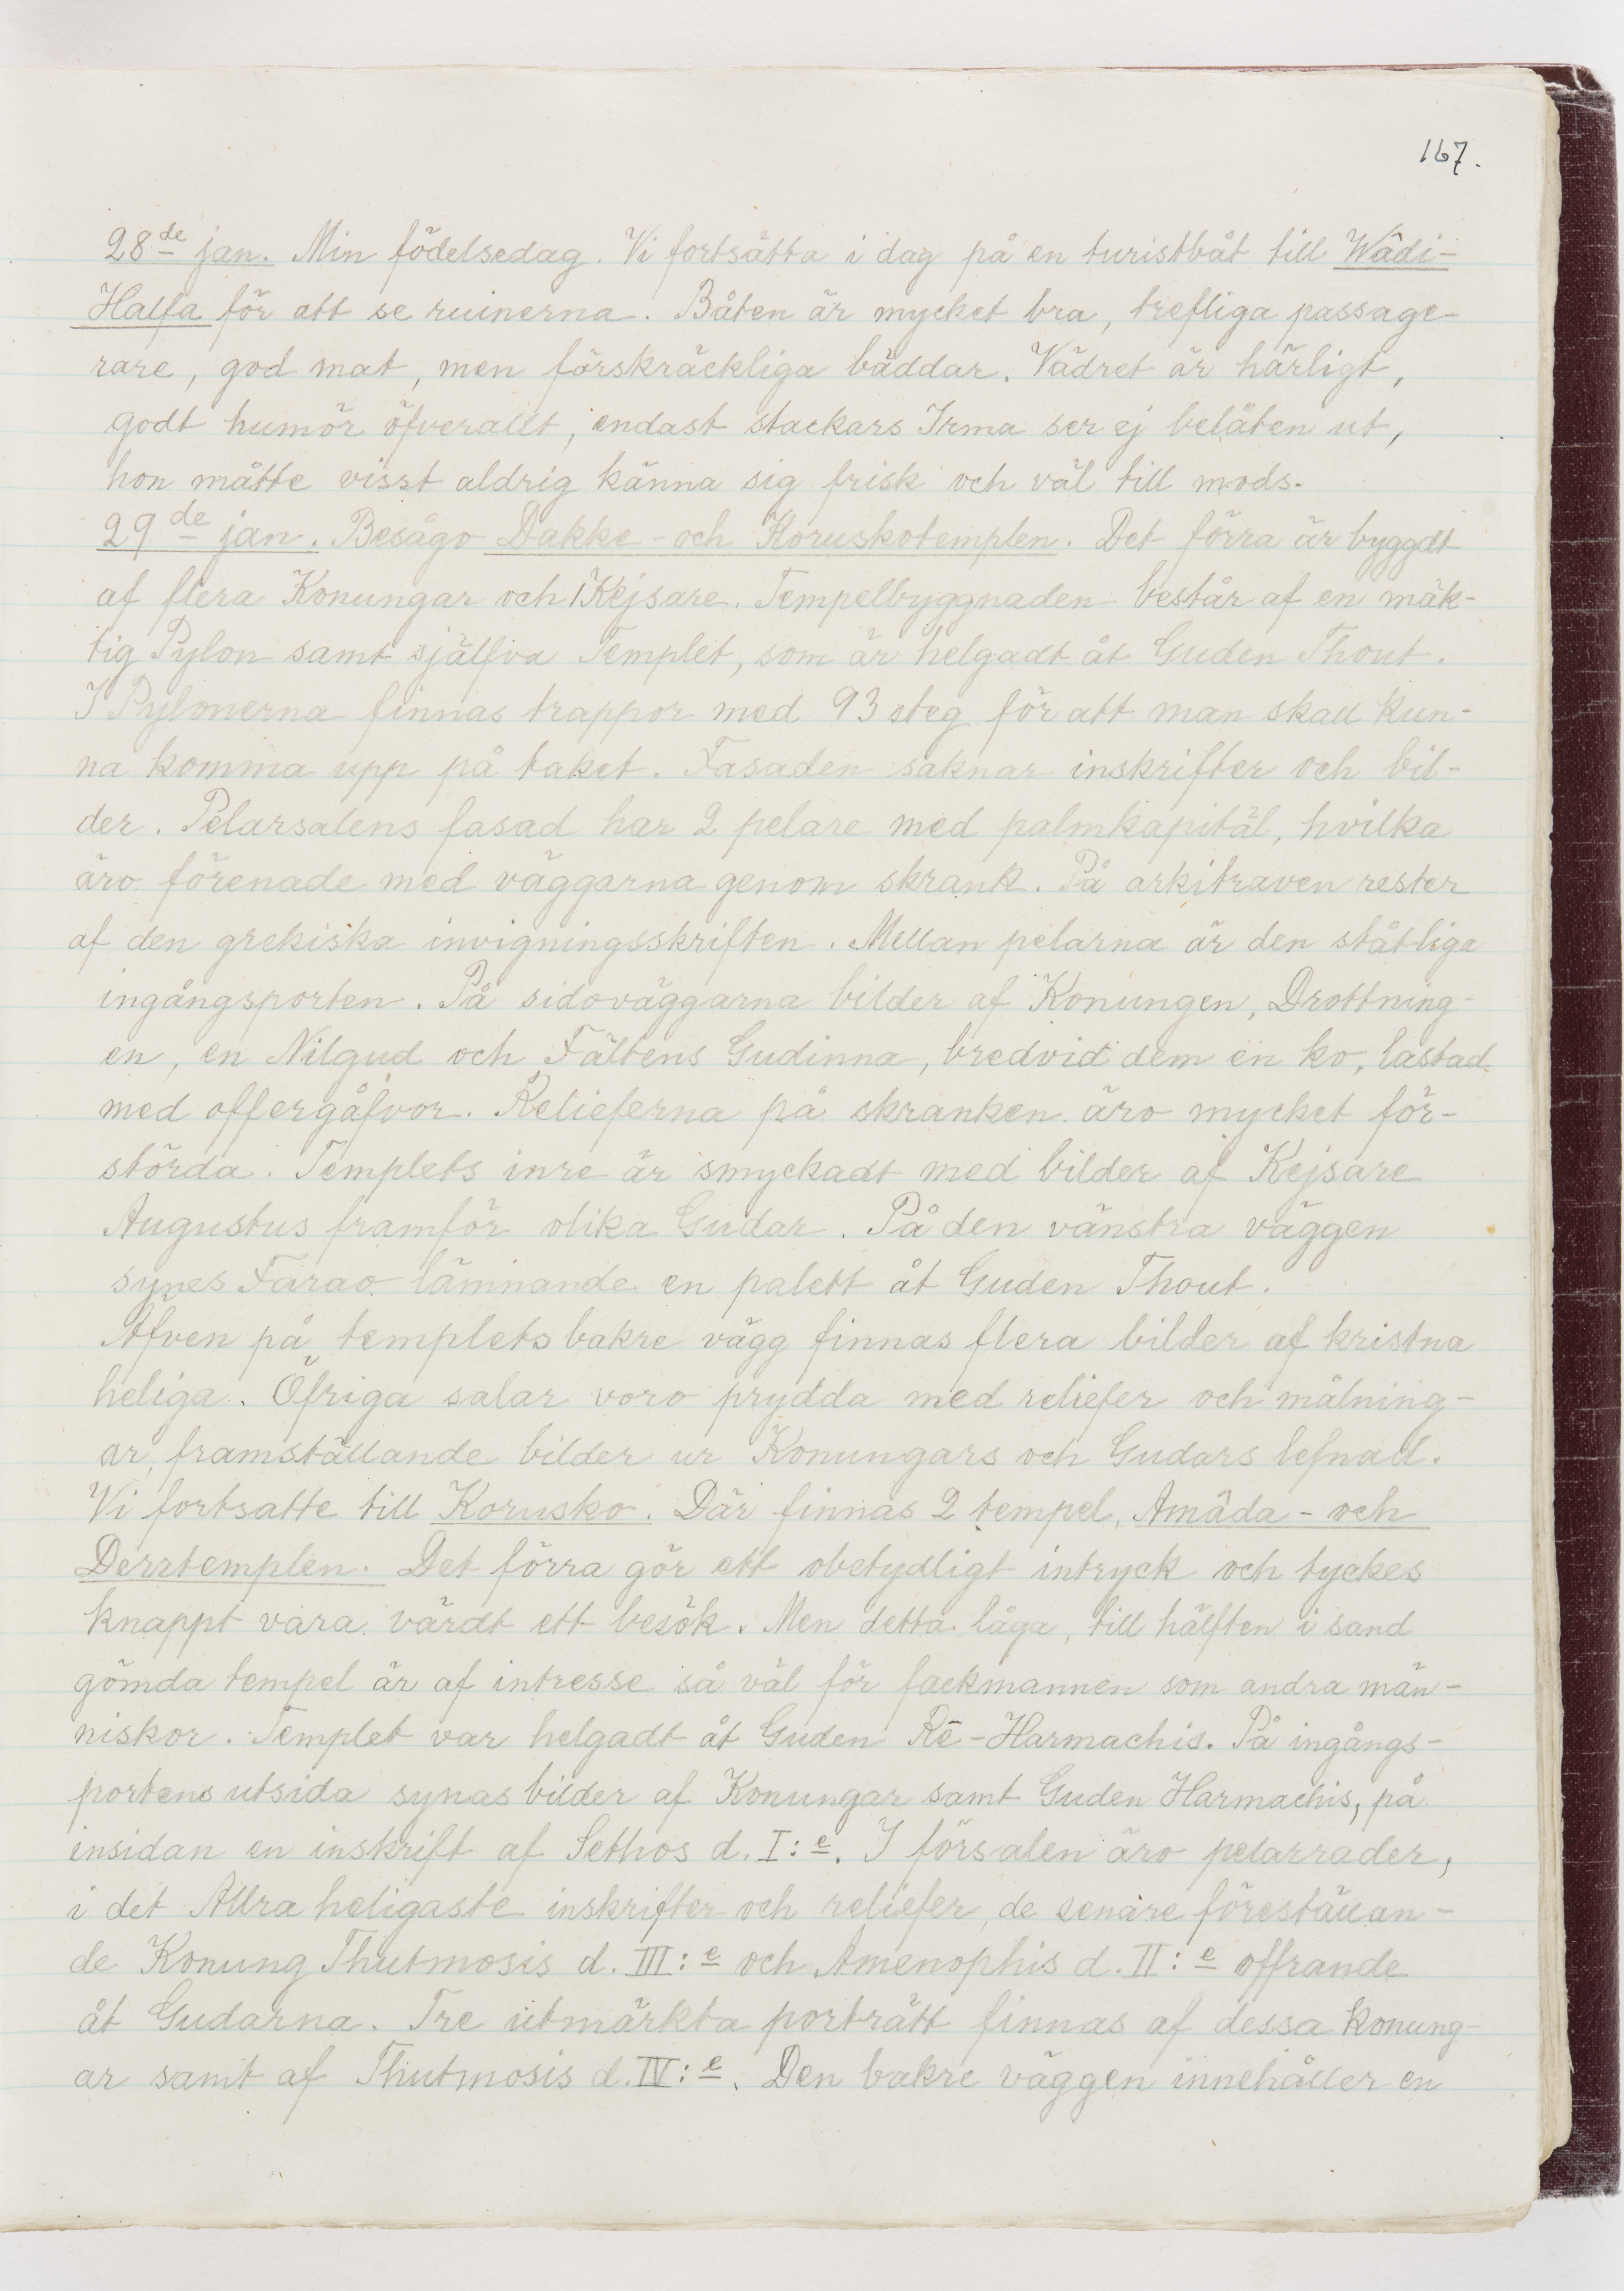 167.
28de jan. Min födelsedag. Vi fortsätta i dag på en turistbåt till Wâdi-
Halfa för att se ruinerna. Båten är mycket bra, trefliga passage-
rare, god mat, men förskräckliga bäddar. Vädret är härligt,
godt humör öfverallt, endast stackars Irma ser ej belåten ut,
hon måtte visst aldrig känna sig frisk och väl till mods.
29de jan. Besågo Dakke- och Koruskotemplen. Det förra är byggdt
af flera Konungar och 1 Kejsare. Tempelbyggnaden består af en mäk-
tig Pylon samt själfva Templet, som är helgadt åt Guden Thout.
I Pylonerna finnas trappor med 93 steg för att man skall kun-
na komma upp på taket. Fasaden saknar inskrifter och bil-
der. Pelarsalens fasad har 2 pelare med palmkapitäl, hvilka
äro förenade med väggarna genom skrank. På arkitraven rester
af den grekiska invigningsskriften. Mellan pelarna är den ståtliga
ingångsporten. På sidoväggarna bilder af Konungen, Drottning-
en, en Nilgud och Fältens Gudinna, bredvid dem en ko, lastad
med offergåfvor. Relieferna på skranken äro mycket för-
störda. Templets inre är smyckadt med bilder af Kejsare
Augustus framför olika Gudar. På den vänstra väggen
synes Farao lämnande en palett åt Guden Thout.
Äfven på templets bakre vägg finnas flera bilder af kristna
heliga. Öfriga salar voro prydda med reliefer och målning-
ar, framställande bilder ur Konungars och Gudars lefnad.
Vi fortsatte till Korusko. Där finnas 2 tempel, Amâda- och
Derrtemplen. Det förra gör ett obetydligt intryck och tyckes
knappt vara värdt ett besök. Men detta låga, till hälften i sand
gömda tempel är af intresse så väl för fackmannen som andra män-
niskor. Templet var helgadt åt Guden Rē-Harmachis. På ingångs-
portens utsida synas bilder af Konungar samt Guden Harmachis, på
insidan en inskrift af Sethos d. I:e. I försalen äro pelarrader,
i det Allra heligaste inskrifter och reliefer, de senare föreställan-
de Konung Thutmosis d. III:e och Amenophis d. II:e offrande
åt Gudarna. Tre utmärkta porträtt finnas af dessa konung-
ar samt af Thutmosis d. IV:e. Den bakre väggen innehåller en